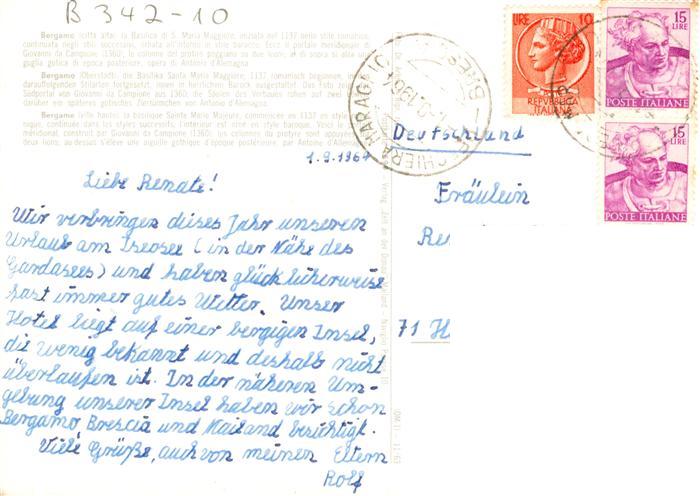 B 342-10
Bergamo (città alta) la Basilica di S. Maria Maggiore, iniziata nel 1137 nello stile romanico,
continuata negli stili successivi, ultimata all'interno in stile barocco. Ecco il portale meridionale di
Giovanni da Campione (1360), le colonne del protiro poggiano su due leoni, al di sopra si alza una
guglia gotica di epoca posteriore, opera di Antonio d'Alemagna.
Bergamo (Oberstadt) die Basilika Santa Maria Maggiore, 1137 romanisch begonnen, in
darauffolgenden Stilarten fortgesetzt, innen in herrlichem Barock ausgestattet. Das
Südportal von Giovanni da Campione (1360) die Säulen des Vorbaues ruhen auf zwei
darüber ein späteres gotisches Ziertürmchen von Antonio d'Alemagna
Bergamo (ville haute) la basilique Sainte Marie Majeure, commencée en 1137 en style
rogue, continuée dans les styles successifs, l'intérieur est orné en style baroque. Voici le
méridional, construit par Giovanni da Campione (1360); les colonnes du protyre sont appuyées
deux lions, au-dessus s'élève une aiguille gothique d'époque postérieure, par Antoine d'Allemagne
LIRE 10
REPVBBLICA
ITALIANA
15
LIRE
POSTE ITALIANE
15
LIRE
POSTE ITALIANE
CHIERA MARAGLIO
1964
1.9.1964
Liebe Renate!
Wir verbringen dieses Jahr unseren
Urlaub am Iseosee (in der Nähe des
Gardasees) und haben glücklicherweise
fast immer gutes Wetter. Unser
Hotel liegt auf einer bergigen Insel,
die wenig bekannt und deshalb nicht
überlaufen ist. In der näheren Um-
gebung unserer Insel haben wir schon
Bergamo, Brescia und Mailand besichtigt.
Viele Grüße, auch von meinen Eltern
Rolf
Deutschland
Fräulein
Re
71 H